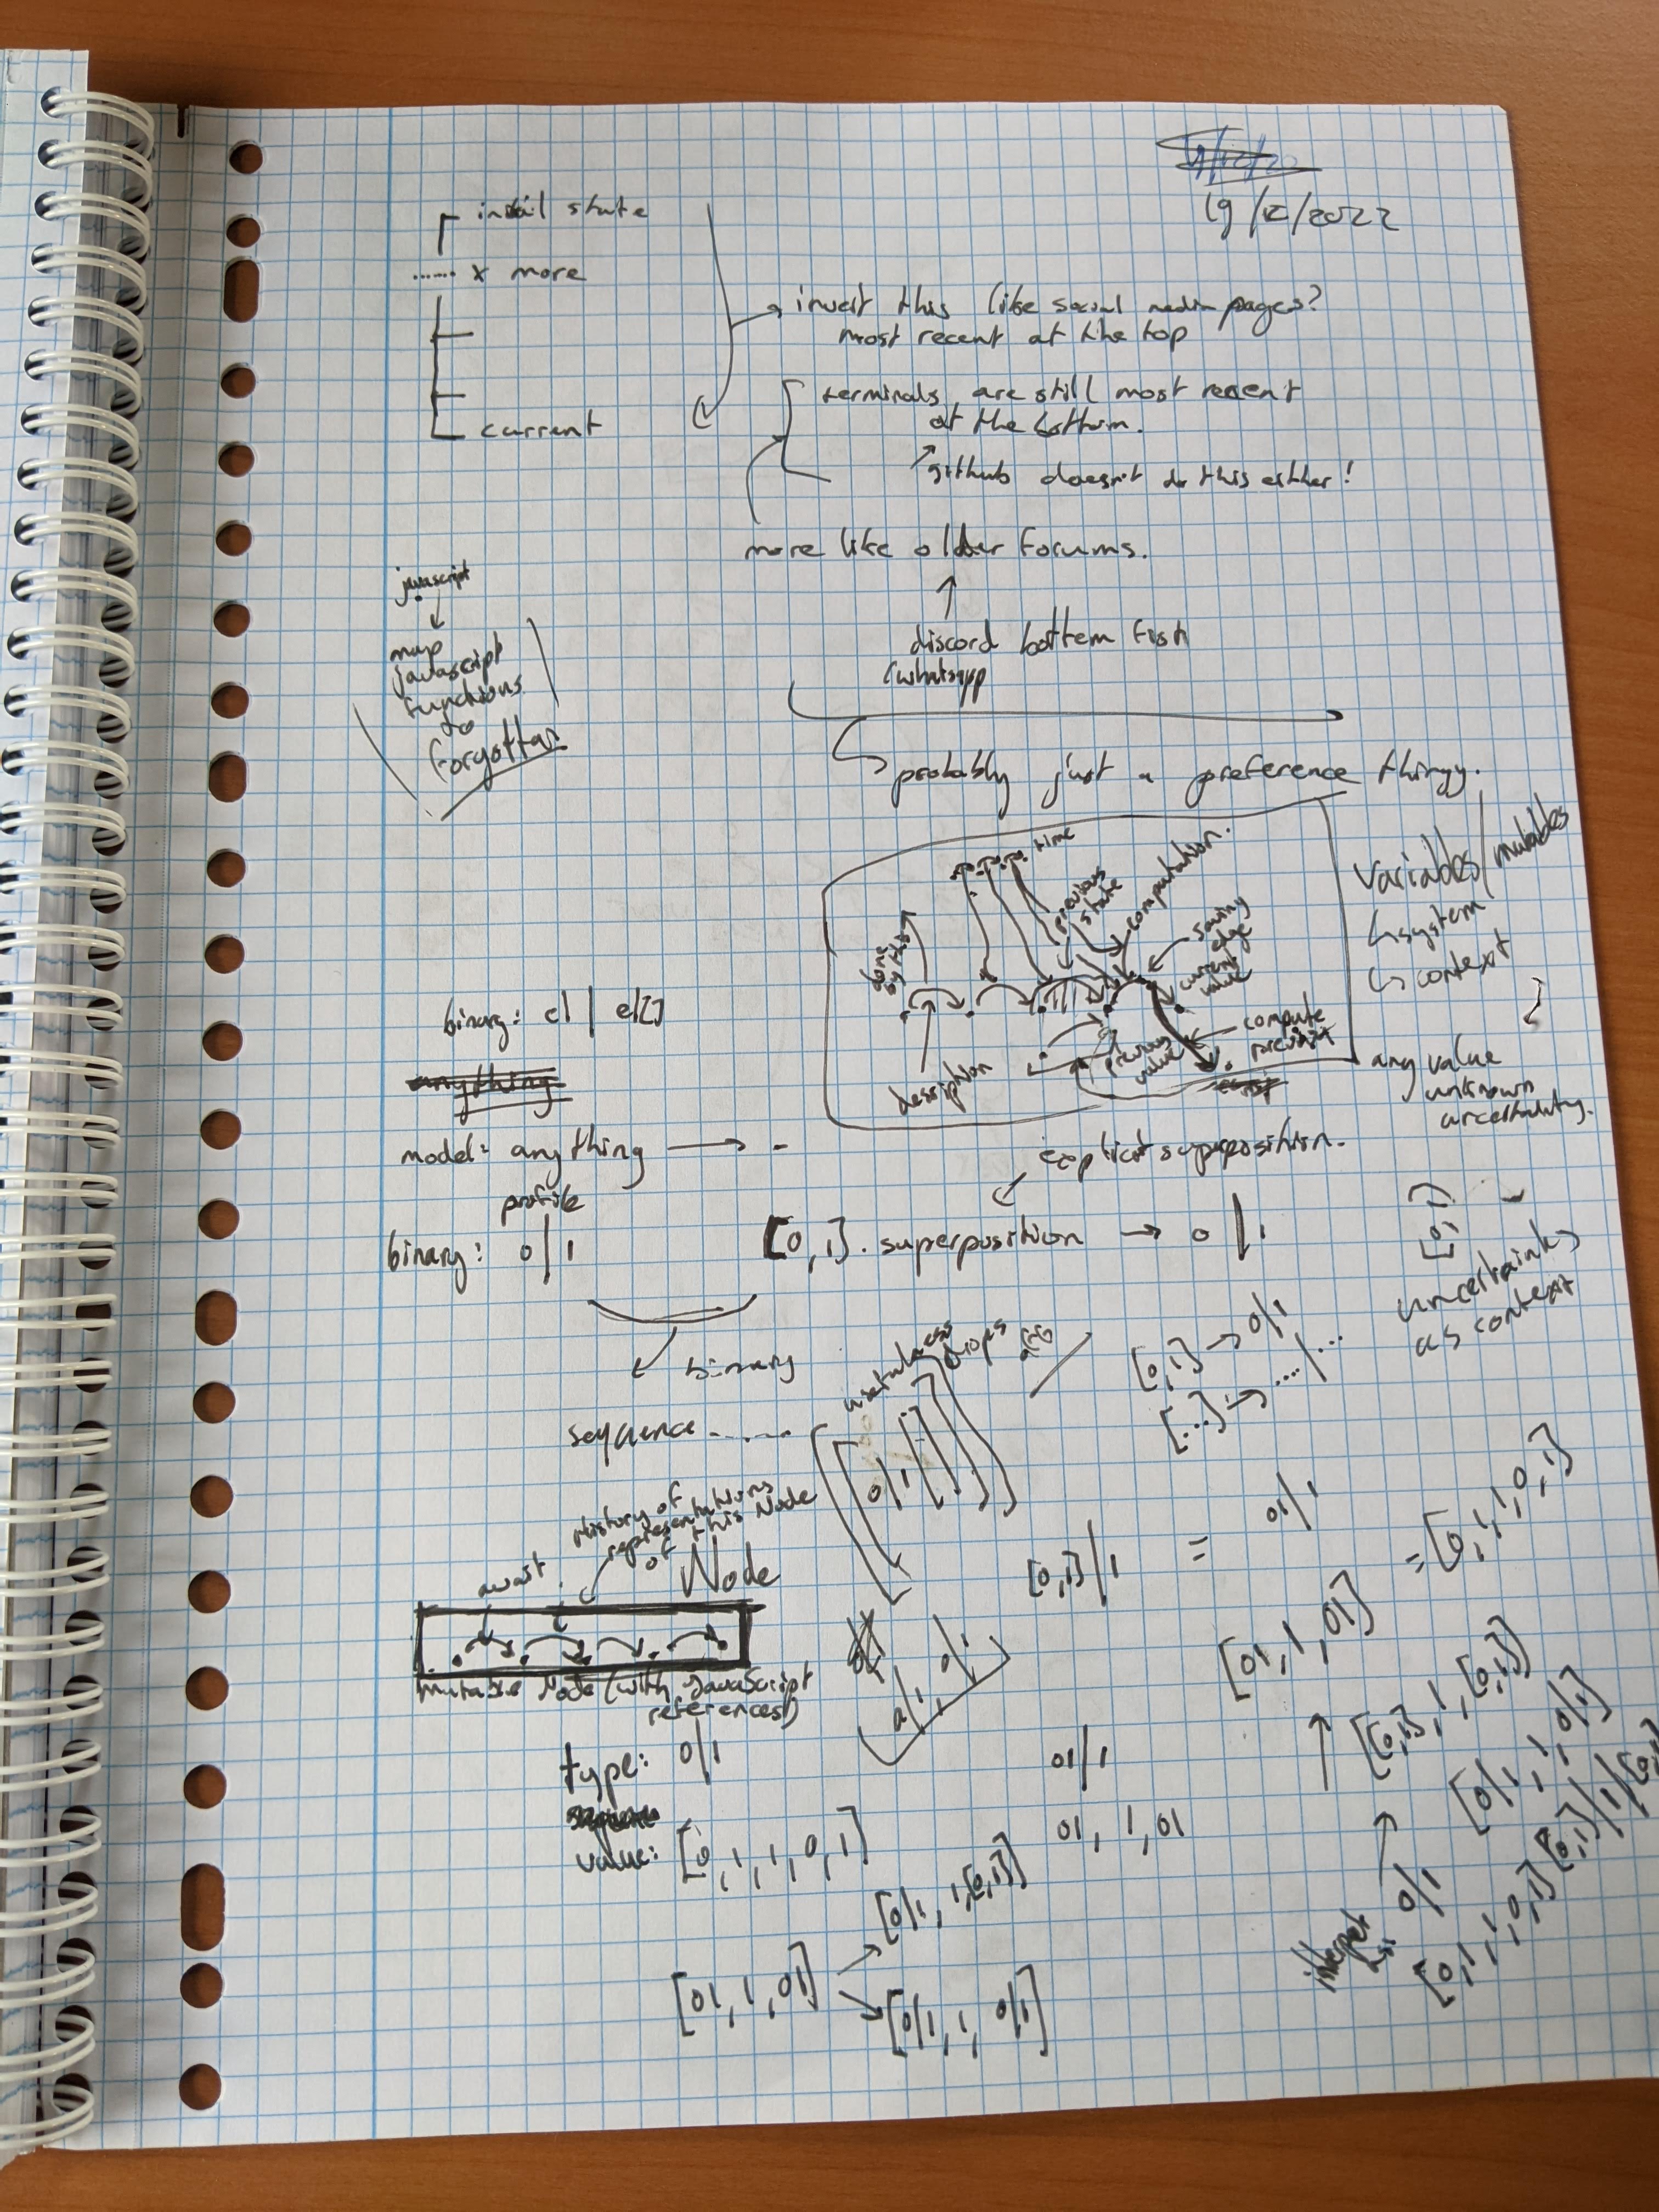 19/12/2022
initial state
...... x more
current
invert this like social media pages?
most recent at the top
terminals are still most recent
at the bottom.
github doesn't do this either!
more like older forums.
discord bottem first
(whatsapp
probably just a preference thingy.
javascript
map
javascript
functions
to
forgotten
time
previous
state
computation.
saving
edge
current
value
done
by this
description
previous
value
compute
variables/mutables
↳ system
↳ context
any value
unknown
uncertainty.
binary: el | el[]
anything
model: anything → -
profile
binary: 0|1
explicit superposition.
[0,1].superposition → 0|1
[0,1]
uncertainty
as context
binary
sequence ......
usefulness
drops
[0,1] → 0|1
[...] → ...|...
[0,1]|1 = 01|1
history of
representations
of this Node
await
Node
mutable Node (with JavaScript
references)
type: 0|1
value: [0,1,1,0,1]
01|1
01, 1, 01
[01, 1, 01]
[0|1, 1, [0,1]]
[0|1, 1, 0|1]
[01, 1, 01] = [0,1,1,0,1]
[[0,1], 1, [0,1]]
[0|1, 1, 0|1]
0|1
[0,1,1,0,1]